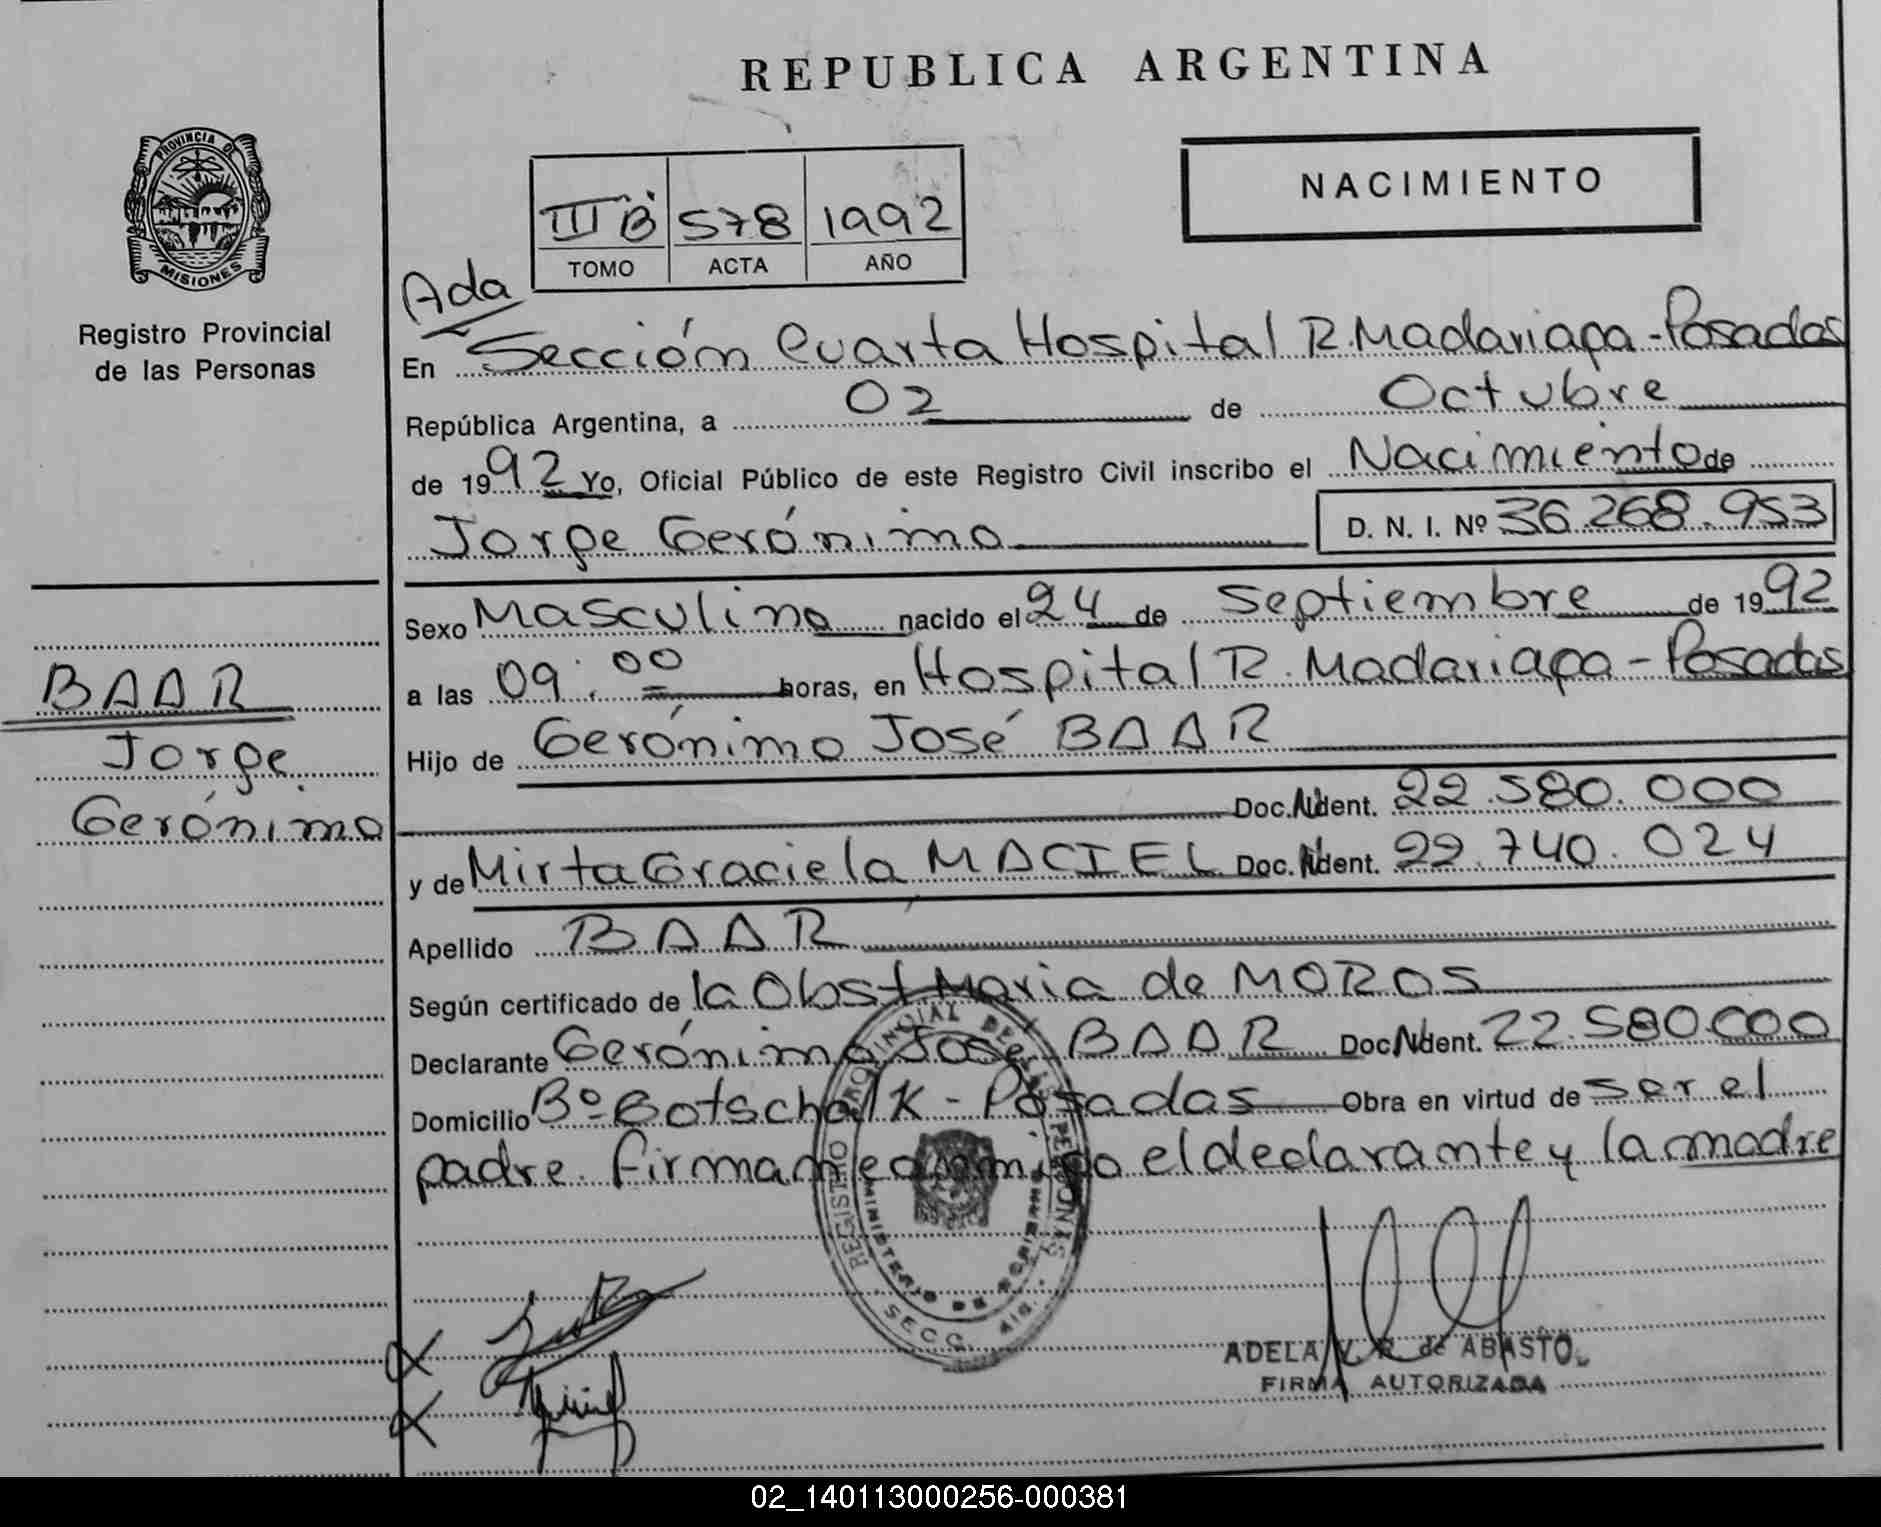 REPUBLICA ARGENTINA
NACIMIENTO
III B 578 1992
TOMO ACTA AÑO
PROVINCIA DE
MISIONES
Registro Provincial
de las Personas
Ada
En Sección Cuarta Hospital R. Madariaga - Posadas
República Argentina, a 02 de Octubre
de 1992 Yo, Oficial Público de este Registro Civil inscribo el Nacimiento de
Jorge Gerónimo D. N. I. Nº 36.268.953
Sexo Masculino nacido el 24 de Septiembre de 1992
a las 09:00 horas, en Hospital R. Madariaga - Posadas
Hijo de Gerónimo José BAAR
Doc. Ident. 22.580.000
y de Mirta Graciela MACIEL Doc. Ident. 22.740.024
Apellido BAAR
Según certificado de la Obst Maria de MOROS
Declarante Gerónimo José BAAR Doc. Ident. 22.580.000
Domicilio Bº Gotschalk - Posadas Obra en virtud de ser el
padre. Firman conmigo el declarante y la madre
BAAR
Jorge
Gerónimo
REGISTRO PROVINCIAL DE LAS PERSONAS
MINISTERIO DE GOBIERNO
SECC. 4
ADELA V. R. de ABASTO
FIRMA AUTORIZADA
02_140113000256-000381